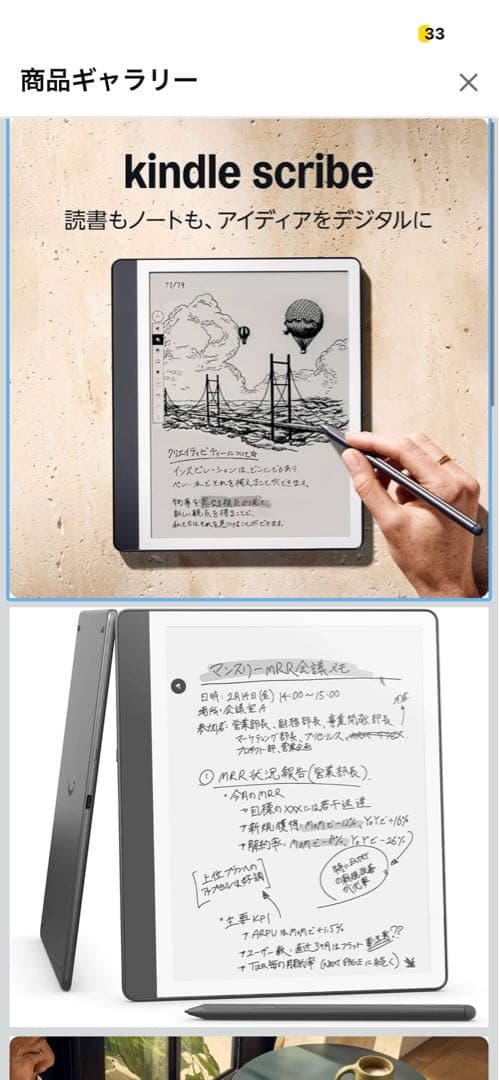 33
商品ギャラリー
kindle scribe
読書もノートも、アイディアをデジタルに
11/19
クリエイティビティーについて
インスピレーションは、どこにでもあり
ペン一本でそれを捕えることができます。
物事を異なる視点から見て
新しい観点を得ることで、
私たちはそれを見つけることができます。
マンスリーMRR会議メモ
日時：2月14日(金) 14:00〜15:00
場所：会議室A
参加者：営業部長、財務部長、事業開発部長
マーケティング部長、
プロダクト部、営業企画
① MRR状況報告(営業部長)
・今月のMRR
→目標のXXXには若干未達
→新規獲得：MoMで-12%、YoYで+16%
→解約率：MoMで-8%、YoYで-26%
上位プランへの
アップセルは好調
特にENT
の
が
・主要KPI
→ARPUはMoMで+1.5%
→ユーザー数：直近3ヶ月はフラット ??
→TIER毎の解約率 (NEXT PAGEに続く)